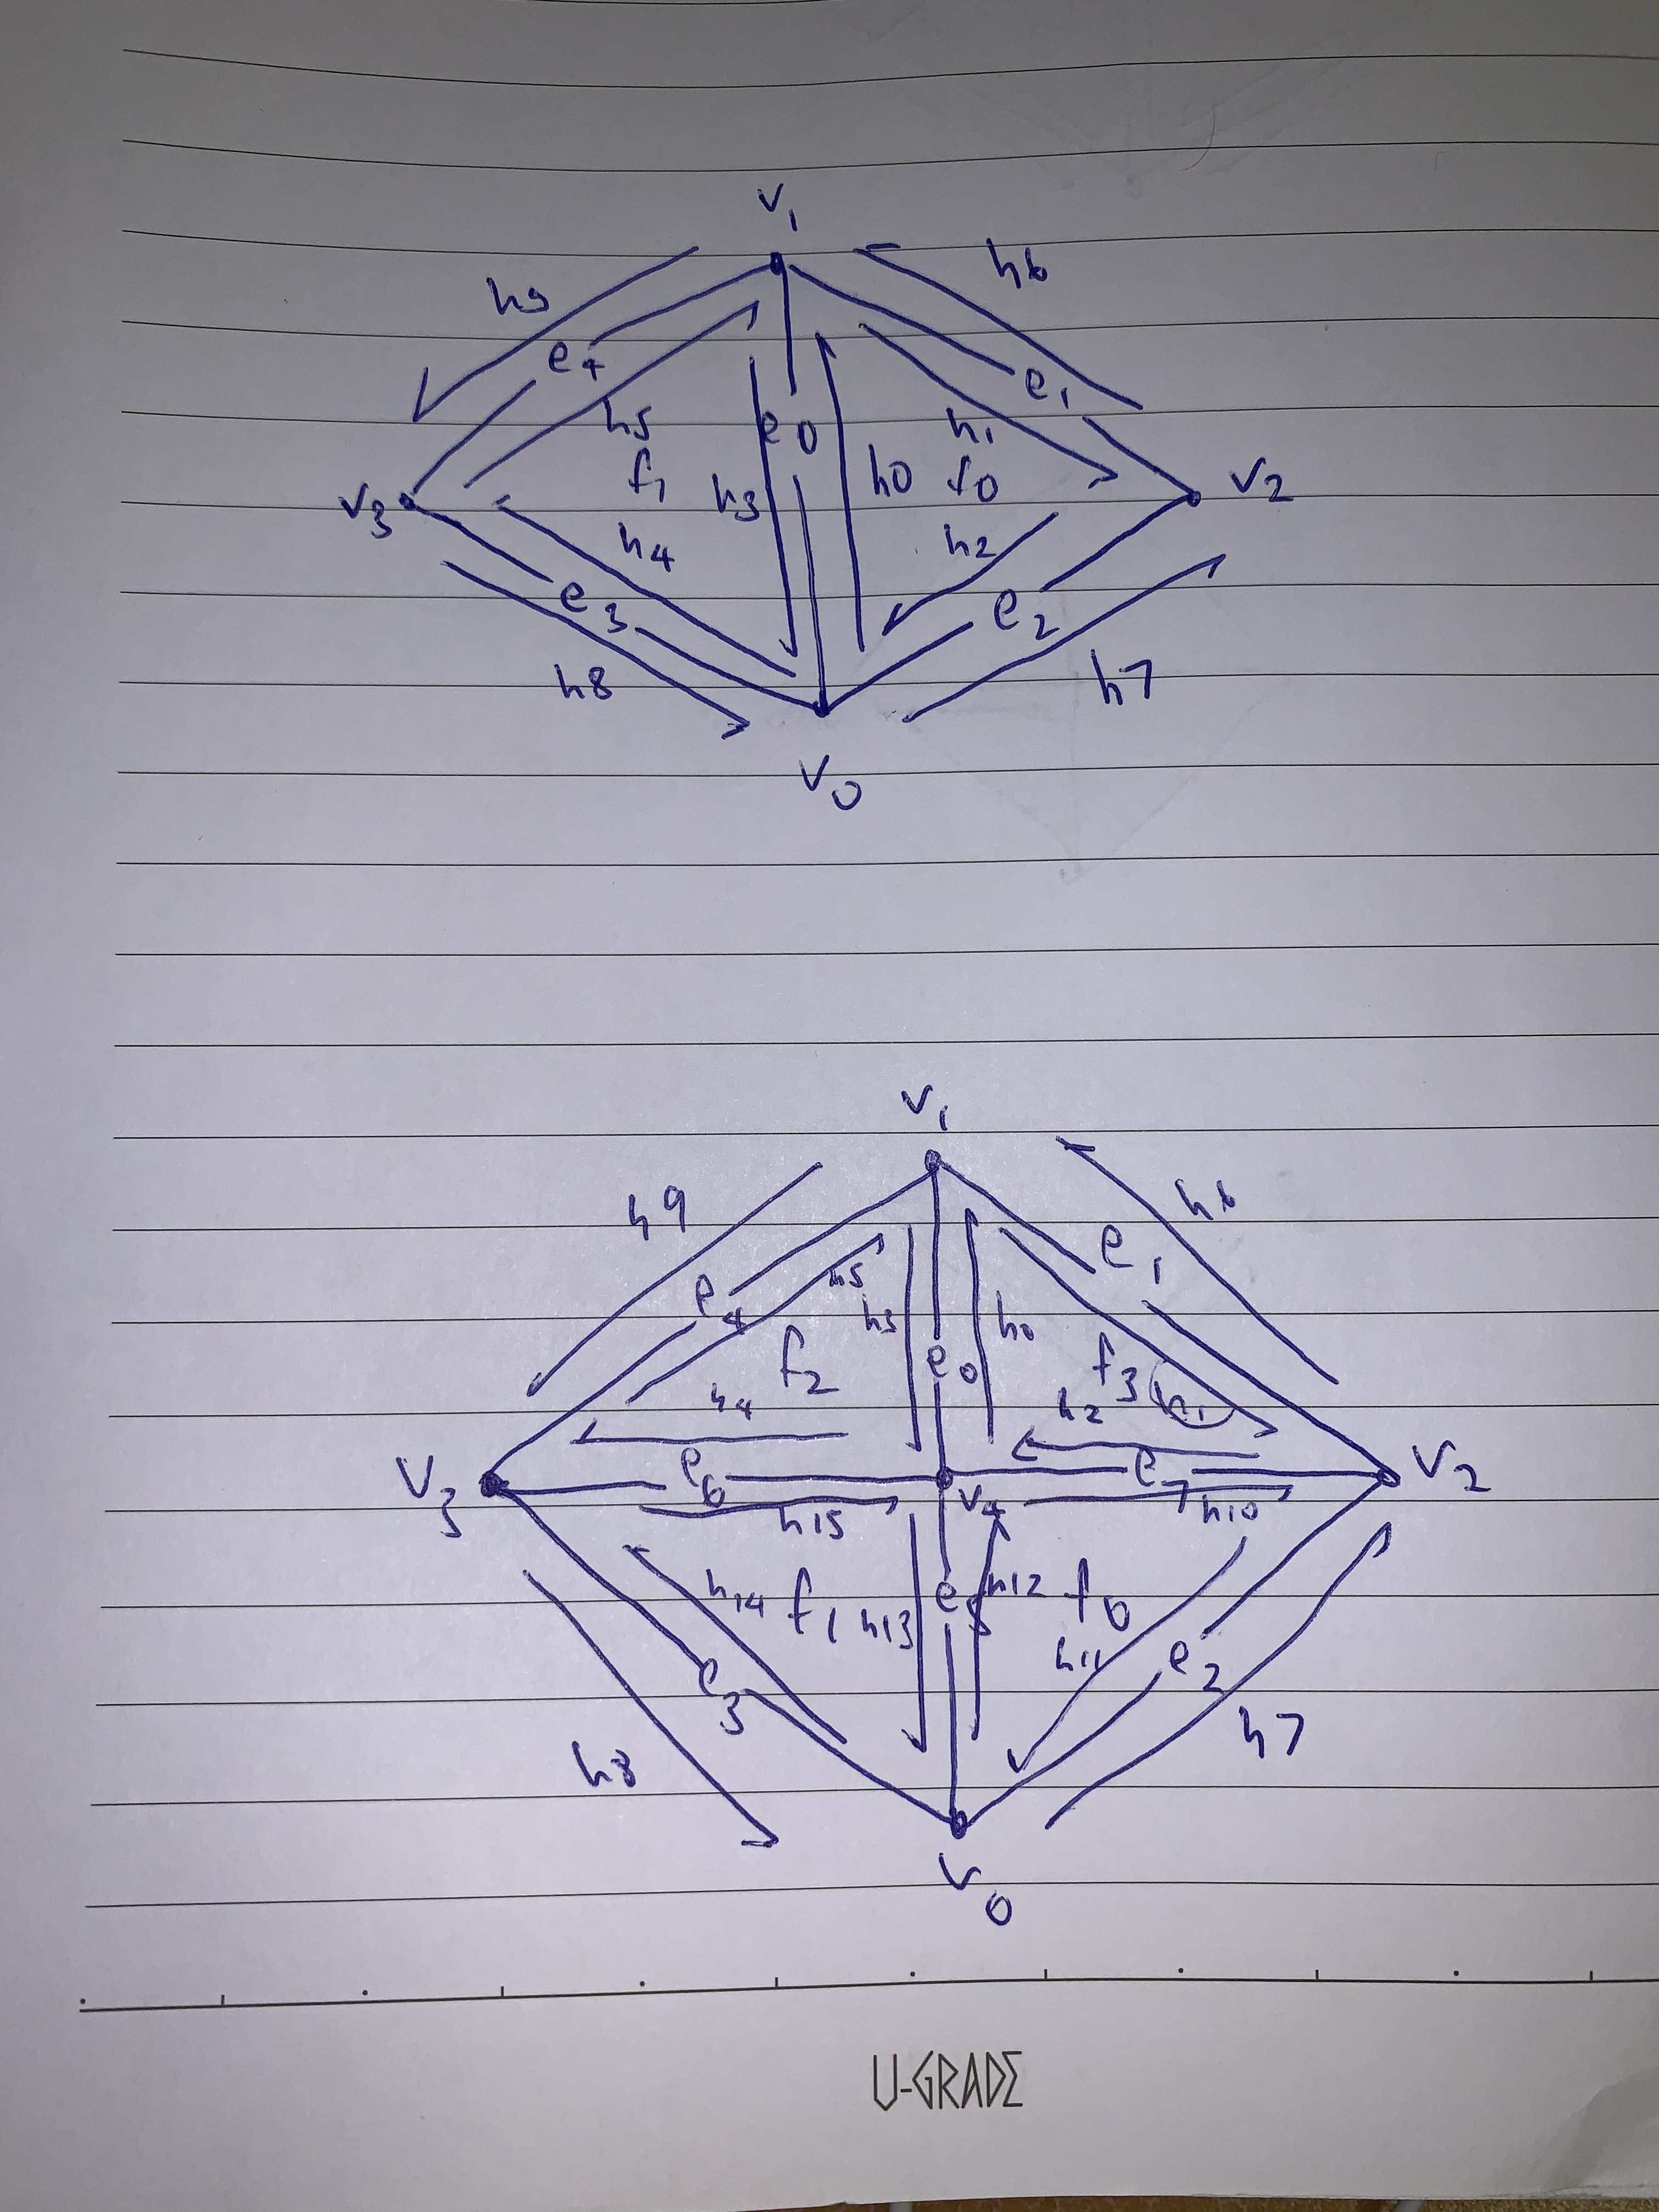 v1
h6
h9
e4
e1
h5
e0
h1
f1
h3
h0
f0
v3
v2
h4
h2
e3
e2
h8
h7
v0
v1
h9
h6
e1
e4
h5
h3
h0
f2
e0
f3
h1
h4
h2
v3
e6
e7
v2
v4
h15
h10
h14
f1
h13
e5
h12
f0
h11
e2
e3
h8
h7
v0
U-GRADE